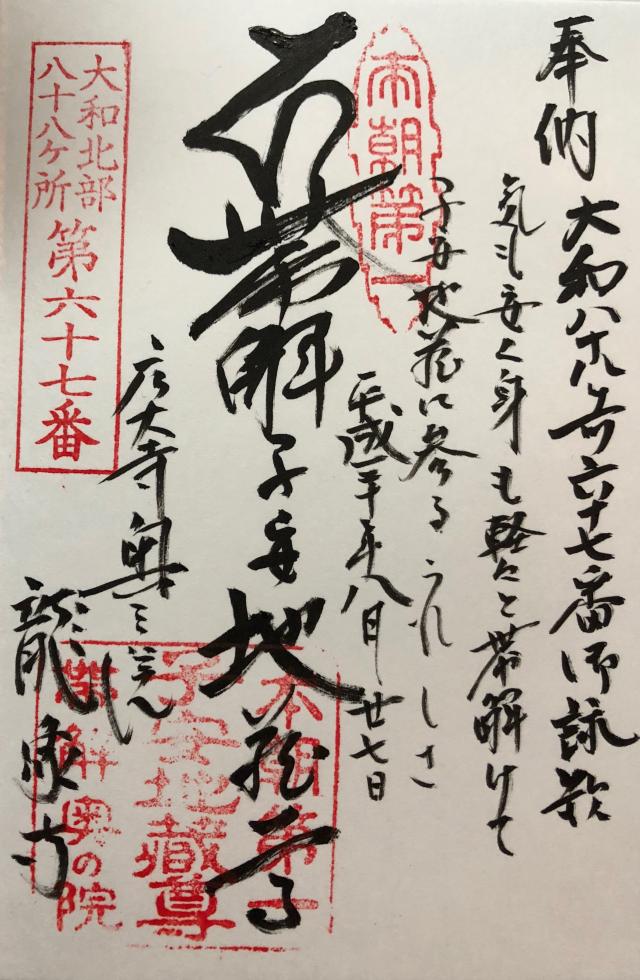 奉納 大和八十八ヶ所六十七番御詠歌
気も安く身も軽々と帯解けて
子安地蔵に参るうれしさ
平成 年八月廿七日
本朝第一
帯解子安地蔵尊
広大寺奥之院
龍象寺
子安地蔵尊
帯解奥の院
大和北部
八十八ヶ所
第六十七番